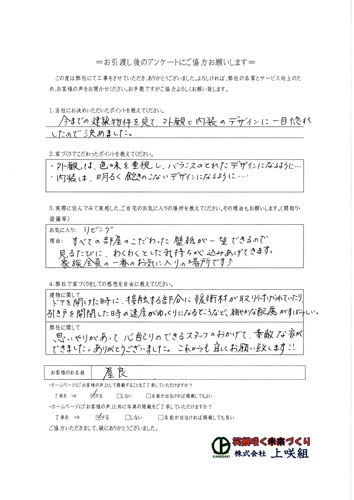 ＝お引渡し後のアンケートにご協力お願いします＝
この度は弊社にて工事をさせていただき、ありがとうございました。よろしければ、弊社の品質とサービス向上のため、お客様の声をお聞かせください。お手数ですがご協力よろしくお願い致します。
1.当社にお決めいただいたポイントを教えてください。
今までの建築物件を見て、外観と内装のデザインに一目惚れ
したので決めました。
2.家づくりでこだわったポイントを教えてください。
・外観は、色味を重視し、バランスのとれたデザインになるように…
・内装は、明るく飽きのこないデザインに…
3.実際に住んでみて実感した、ご自宅のお気に入りの場所を教えてください。その理由もお願いします。(間取り・
設備等)
お気に入り: リビング
理由: すべての部屋のこだわった壁紙が一望できるので
見るたびに、わくわくとした気持ちが込みあげてきます。
家族全員の一番のお気に入りの場所です♪
4.弊社で家づくりをしての感想を自由に教えてください。
建物に関して
ドアを開けた時に、接触する部分に緩衝材が取り付けられていたり、
引き戸を開閉した時の速度がゆっくりになるようになど、細やかな配慮がすばらしい。
弊社に関して
思いやりがあって心配りのできるスタッフのおかげで、素敵な家が
できました。ありがとうございました。これからも宜しくお願い致します!!
お客様のお名前 屋良
・ホームページに「お客様の声」として掲載することをご了承していただけますか?
了承を ⇒ する しない 名前が出なければ掲載してもよい
・ホームページに「お客様の声」と共に写真の掲載をご了承していただけますか?
了承を ⇒ する しない 名前が出なければ掲載しても良い
ご協力いただきまして、誠にありがとうございました。
KAMISAKI
笑顔咲く未来づくり
株式会社 上咲組